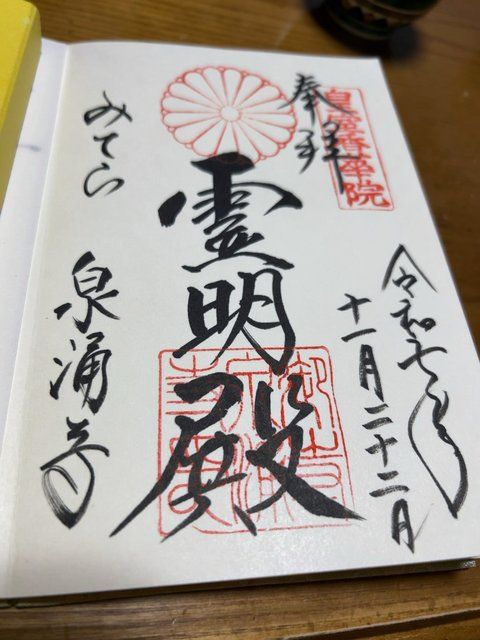 奉拝
皇室香華院
令和七年
十一月二十二日
霊明殿
みてら
泉涌寺